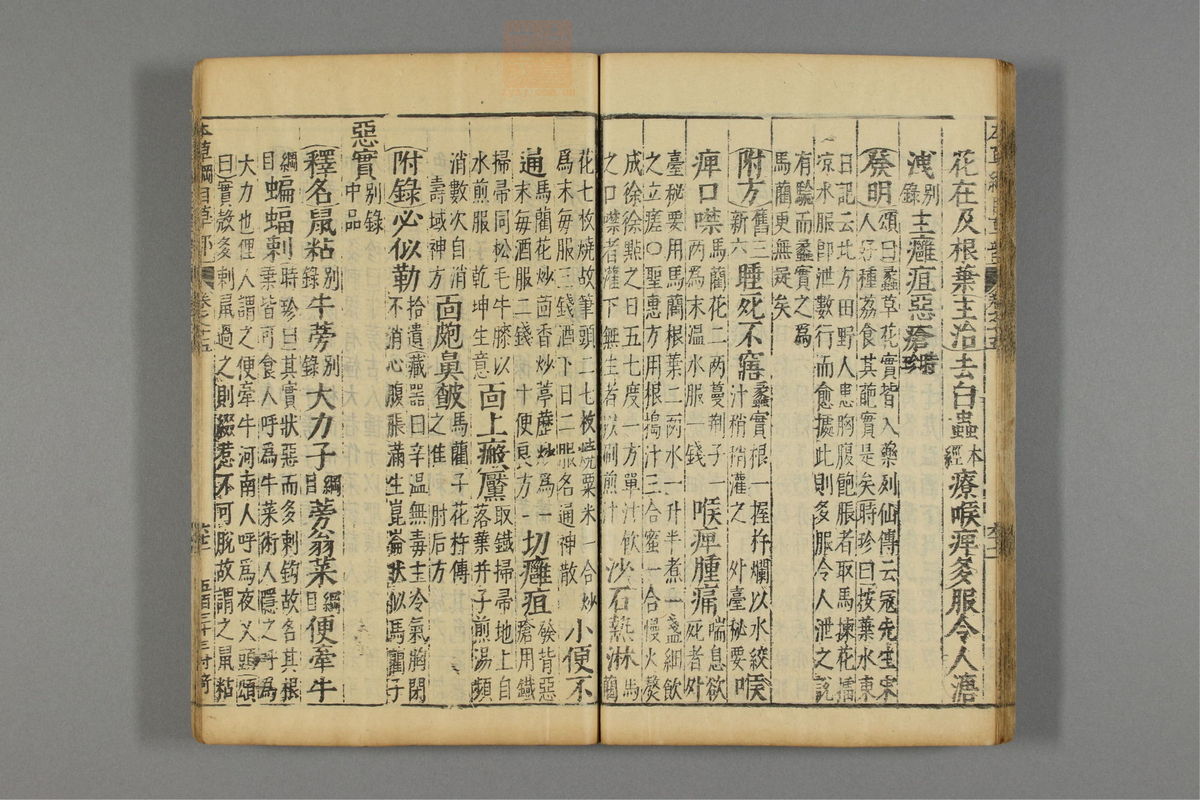 花在及根葉主治去白蟲本經療喉痺多服令人溏
洩別錄主癰疽惡瘡時珍
發明頌曰蠡草花實皆入藥列仙傳云寇先生宋
人好種荔食其葩實是矣時珍曰按葉水東
日記云北方田野人患胸腹飽脹者取馬揀花擂
凉水服卽泄數行而愈據此則多服令人泄之說
有驗而蠡實之爲
馬藺更無疑矣
附方舊三新六睡死不寤蠡實根一握杵爛以水絞汁稍稍灌之 外臺秘要喉
痺口噤馬藺花二兩蔓荆子一兩爲末温水服一錢喉痺腫痛喘息欲死者外
臺秘要用馬藺根葉二兩水一升半煮一盞細飲
之立瘥○聖惠方用根搗汁三合蜜一合慢火熬
成徐徐點之日五七度一方單汁飲
之口噤者灌下無生者以刷煎汁沙石熱淋馬藺
花七枚燒故筆頭二七枚燒粟米一合炒
爲末每服三錢酒下日二服名通神散小便不
通馬藺花炒茴香炒葶藶炒爲末每酒服二錢 十便良方一切癰疽發背惡瘡用鐵
掃帚同松毛牛膝以水煎服 乾坤生意面上瘢黶取鐵掃帚地上自落葉并子煎湯頻
消數次自消 壽域神方面皰鼻皶馬藺子花杵傅之佳 肘后方
附錄必似勒拾遺藏器曰辛温無毒主冷氣胸閉不消心腹脹滿生崑崙狀似馬藺子
惡實別錄中品
釋名鼠粘別錄牛蒡別錄大力子綱目蒡翁菜綱目便牽牛
綱目蝙蝠刺時珍曰其實狀惡而多刺鈎故名其根葉皆可食人呼爲牛菜術人隱之呼爲
大力也俚人謂之便牽牛河南人呼爲夜叉頭頌
曰實殼多刺鼠過之則綴惹不可脫故謂之鼠粘
本草綱目草部 卷之十五